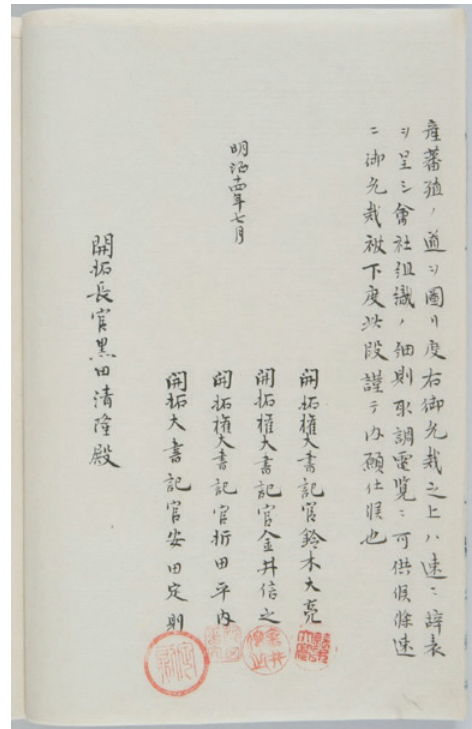 産蕃殖ノ道ヲ圖リ度右御允裁之上ハ速ニ辞表
ヲ呈シ會社組織ノ細則取調電覧ニ可供候條速
ニ御允裁被下度此段謹テ内願仕候也
明治十四年七月
開拓權大書記官鈴木大亮
開拓權大書記官金井信之
開拓權大書記官折田平内
開拓大書記官安田定則
開拓長官黒田清隆殿